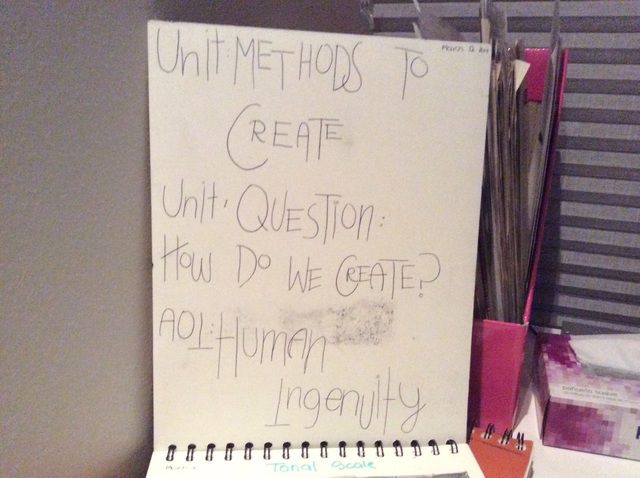 Unit: METHODS TO
CREATE
Unit: QUESTION:
HOW DO WE CREATE?
AOI: HUMAN
Ingenuity
Tonal Scale